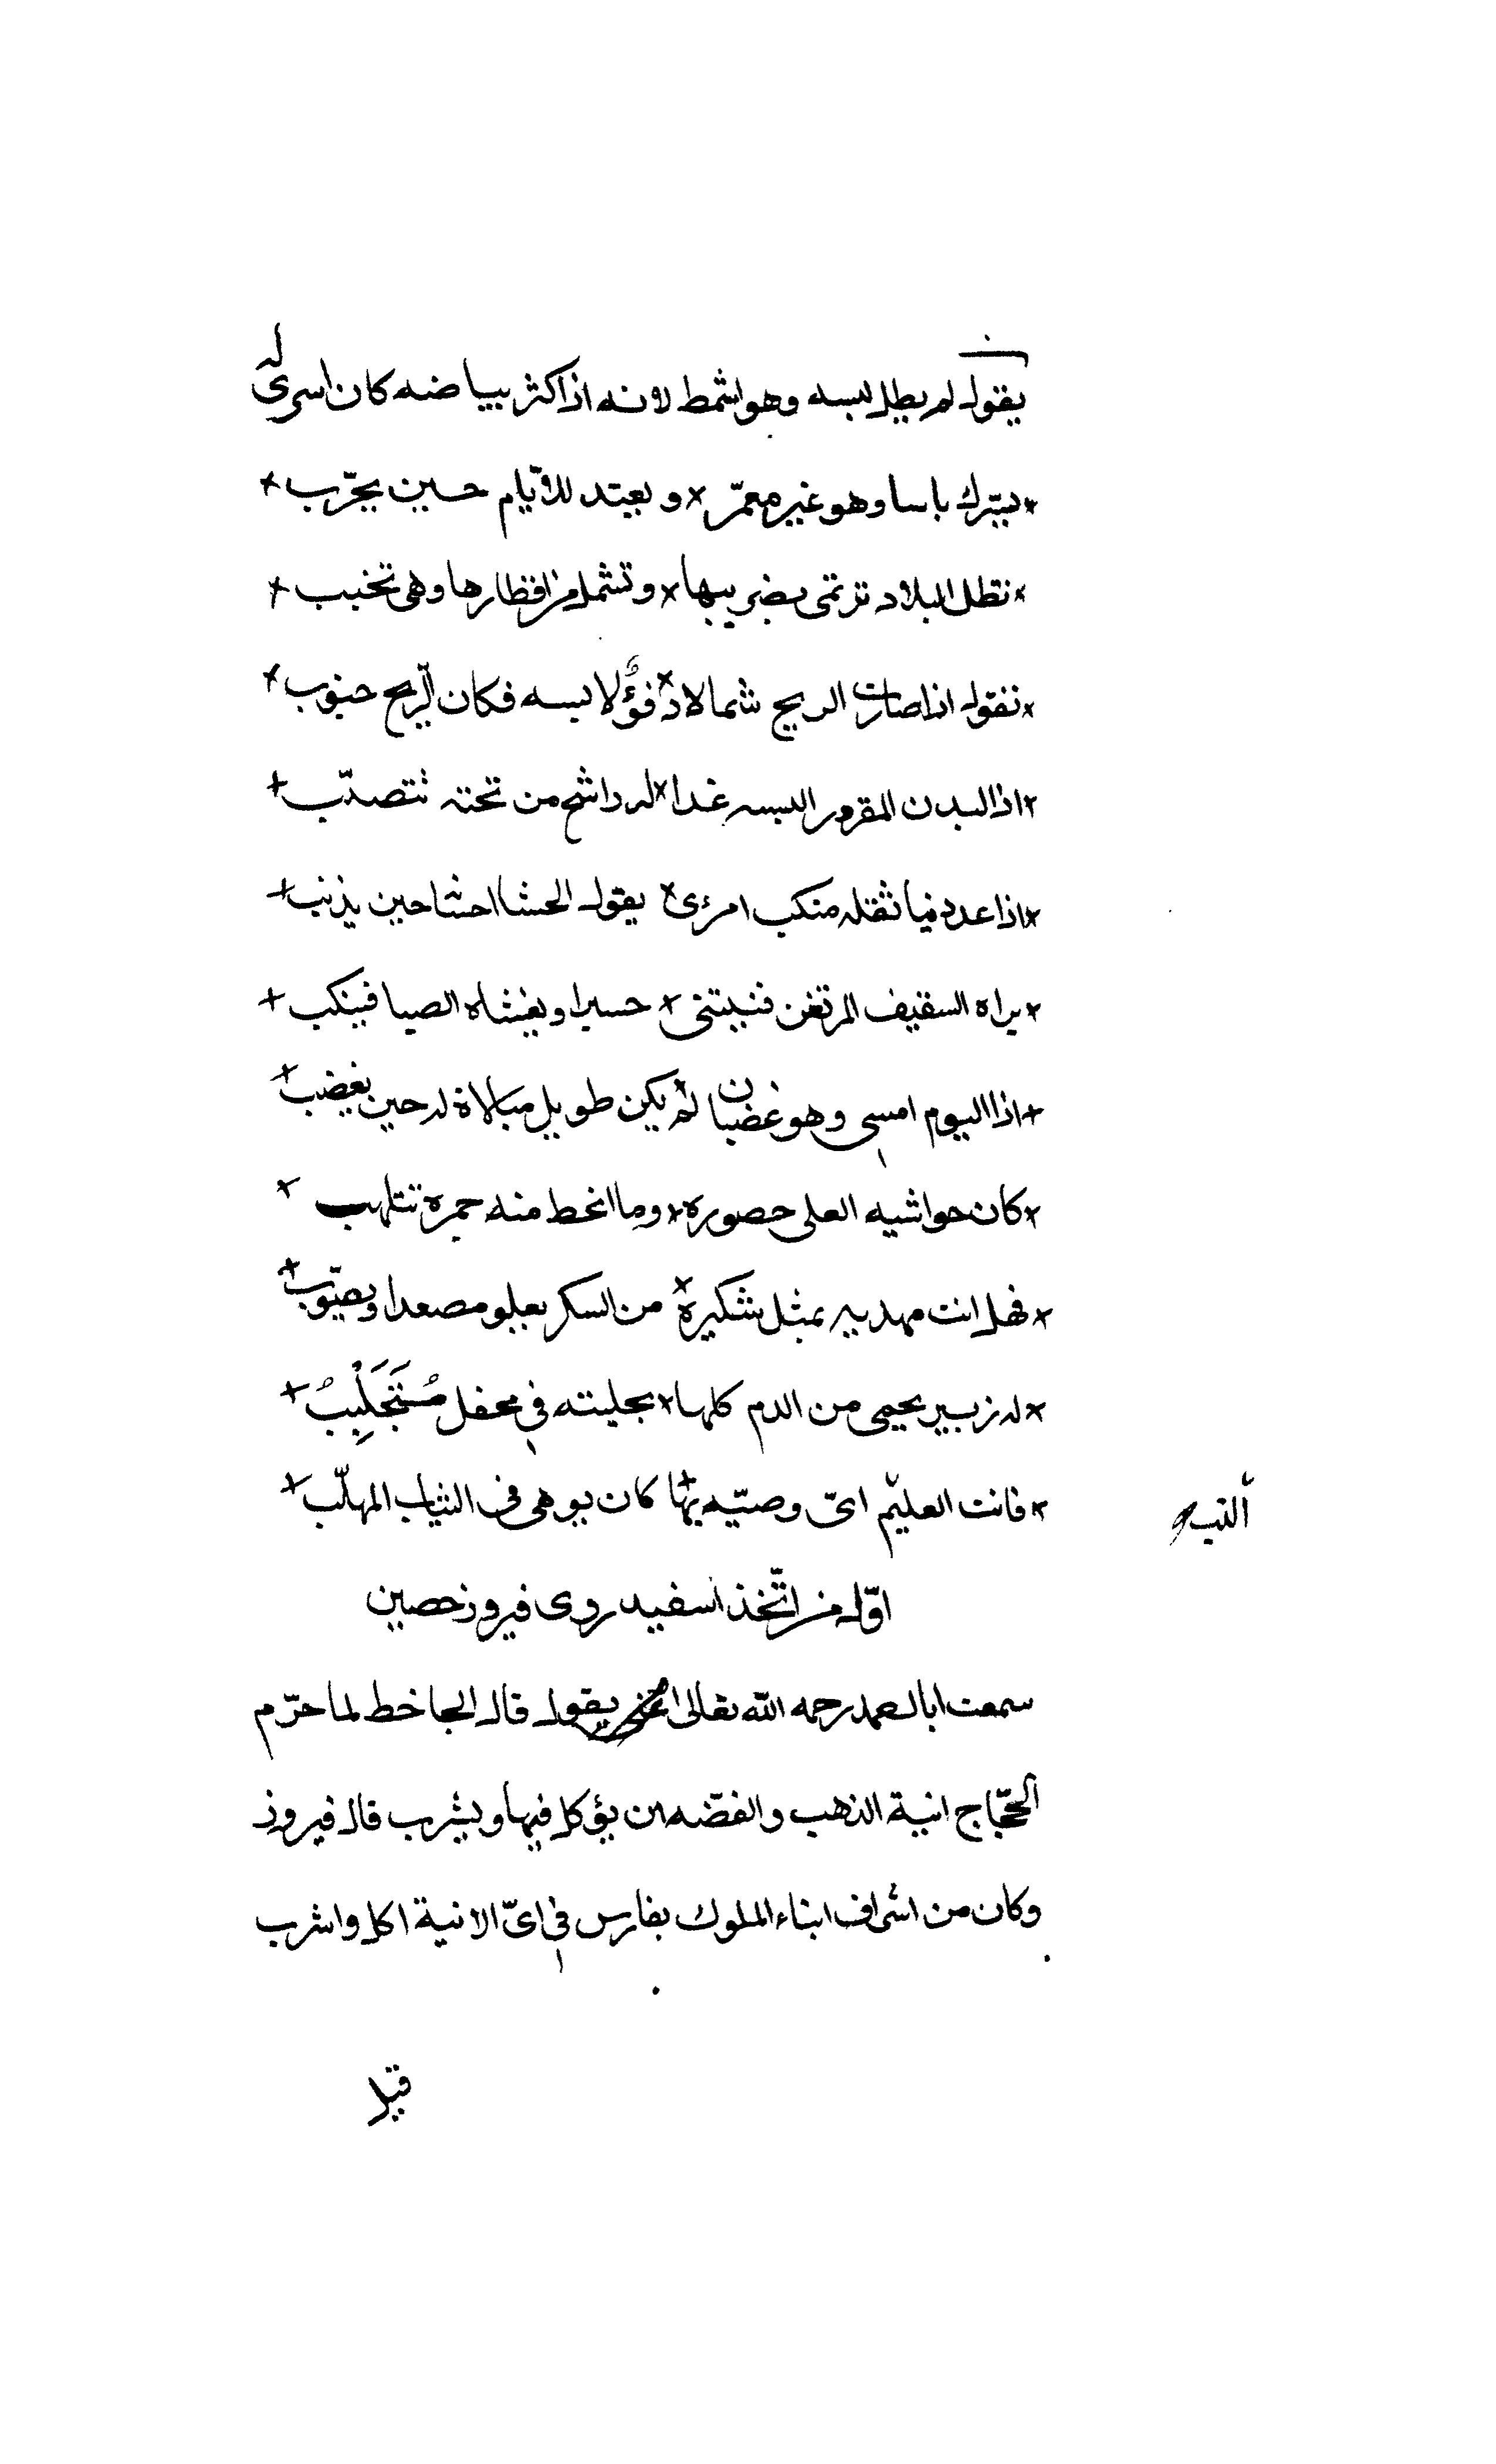 يقول لم يطل لبسه وهو اشمط لانه اذا كثر بياضه كان اسرى له
* يترك باسا وهو غير معمّر * ويعتد للايّام حين يجرّب *
* تظل البلاد ترتمى بضريبها * وتشمل من اقطارها وهى تخبب *
* تقول اذا صارت الريح شمالا * دفؤ لابسه فكان الريح جنوب *
* اذا البدن المقرور البسه غدا * له راشح من تحته تتصبّب *
* اذا عد دنيا ثقله منكب امرئ * يقول الحشا احشا حين يذنب *
* يراه السقيف المرتغن فينثنى * حسيرا ويغشاه الصبا فينكب *
* اذا اليوم امسى وهو غضبان لم يكن * طويل مبالاة له حين يغضب *
* كان حواشيه العلى حصوره * وما انحط منه جمرة تتلهب *
* فهل انت مهديه بمثل شكيره * من السكر يعلو مصعدا ويصوّب *
* له زبير يحيى من الدم كلها * بجلبته فى محفل مُسْتَجْلِبُ *
* فانت العليم اىّ وصيّه بها * كان يوهى فى الثياب المهلّب *
اوّل من اتّخذ اسفيدروى فيروز حصين
سمعت ابا رحمه الله تعالى يقول قال الجاحظ لما حرّم
الحجّاج انية الذهب والفضّه ان يؤكل فيها ويشرب قال فيروز
وكان من اشراف ابناء الملوك بفارس فى اىّ الانية اكل واشرب
قيل